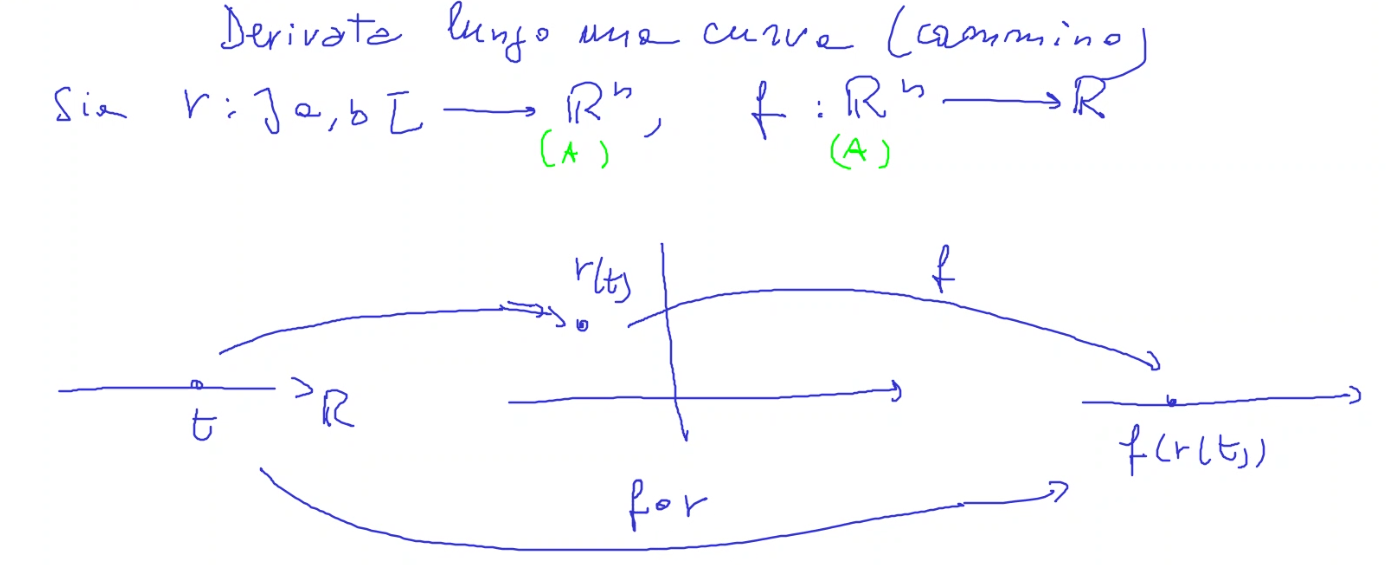 Derivata lungo una curva (cammino)
Sia r : ]a,b[ → ℝⁿ, f : ℝⁿ → ℝ
(A) (A)
r(t) f
t ℝ
f(r(t))
f∘r